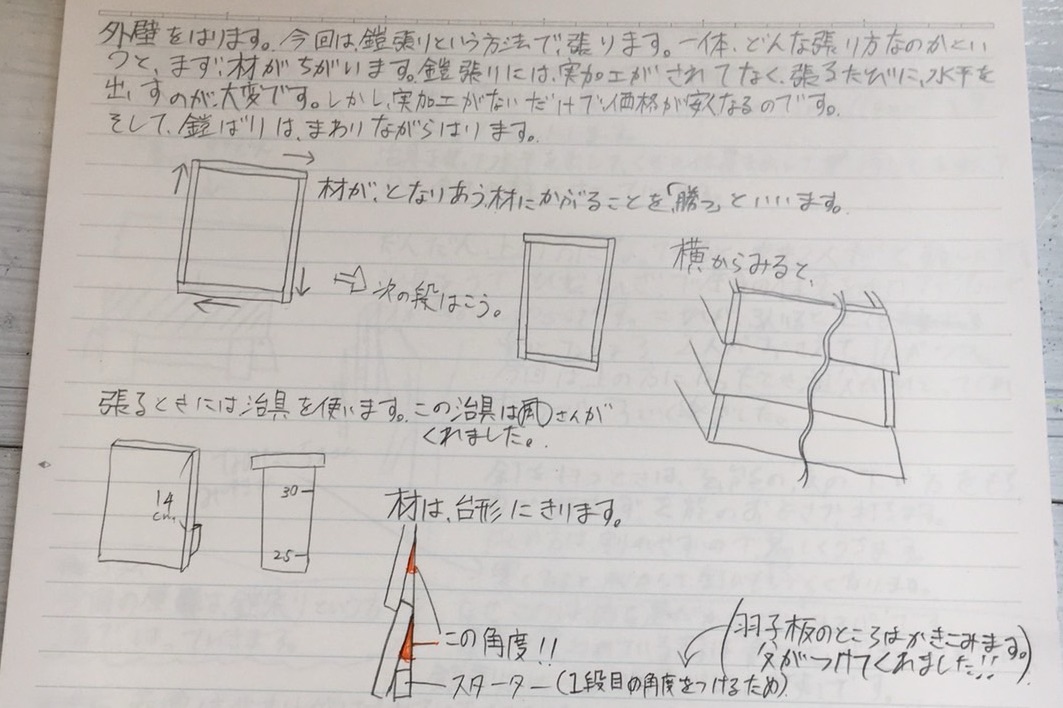 外壁をはります。今回は、鎧張りという方法で、張ります。一体、どんな張り方なのかとい
うと、まず、材がちがいます。鎧張りには、実加工がされてなく、張るたびに、水平を
出すのが、大変です。しかし、実加工がないだけで、価格が安くなるのです。
そして、鎧ばりは、まわりながらはります。
材が、となりあう、材にかぶることを、「勝つ」といいます。
次の段はこう。
横からみると、
張るときには治具を使います。この治具は さんが
くれました。
14
cm
30
25
材は、台形にきります。
この角度!!
スターター(1段目の角度をつけるため)
(羽子板のところはかきこみます。
父がつけてくれました!!)